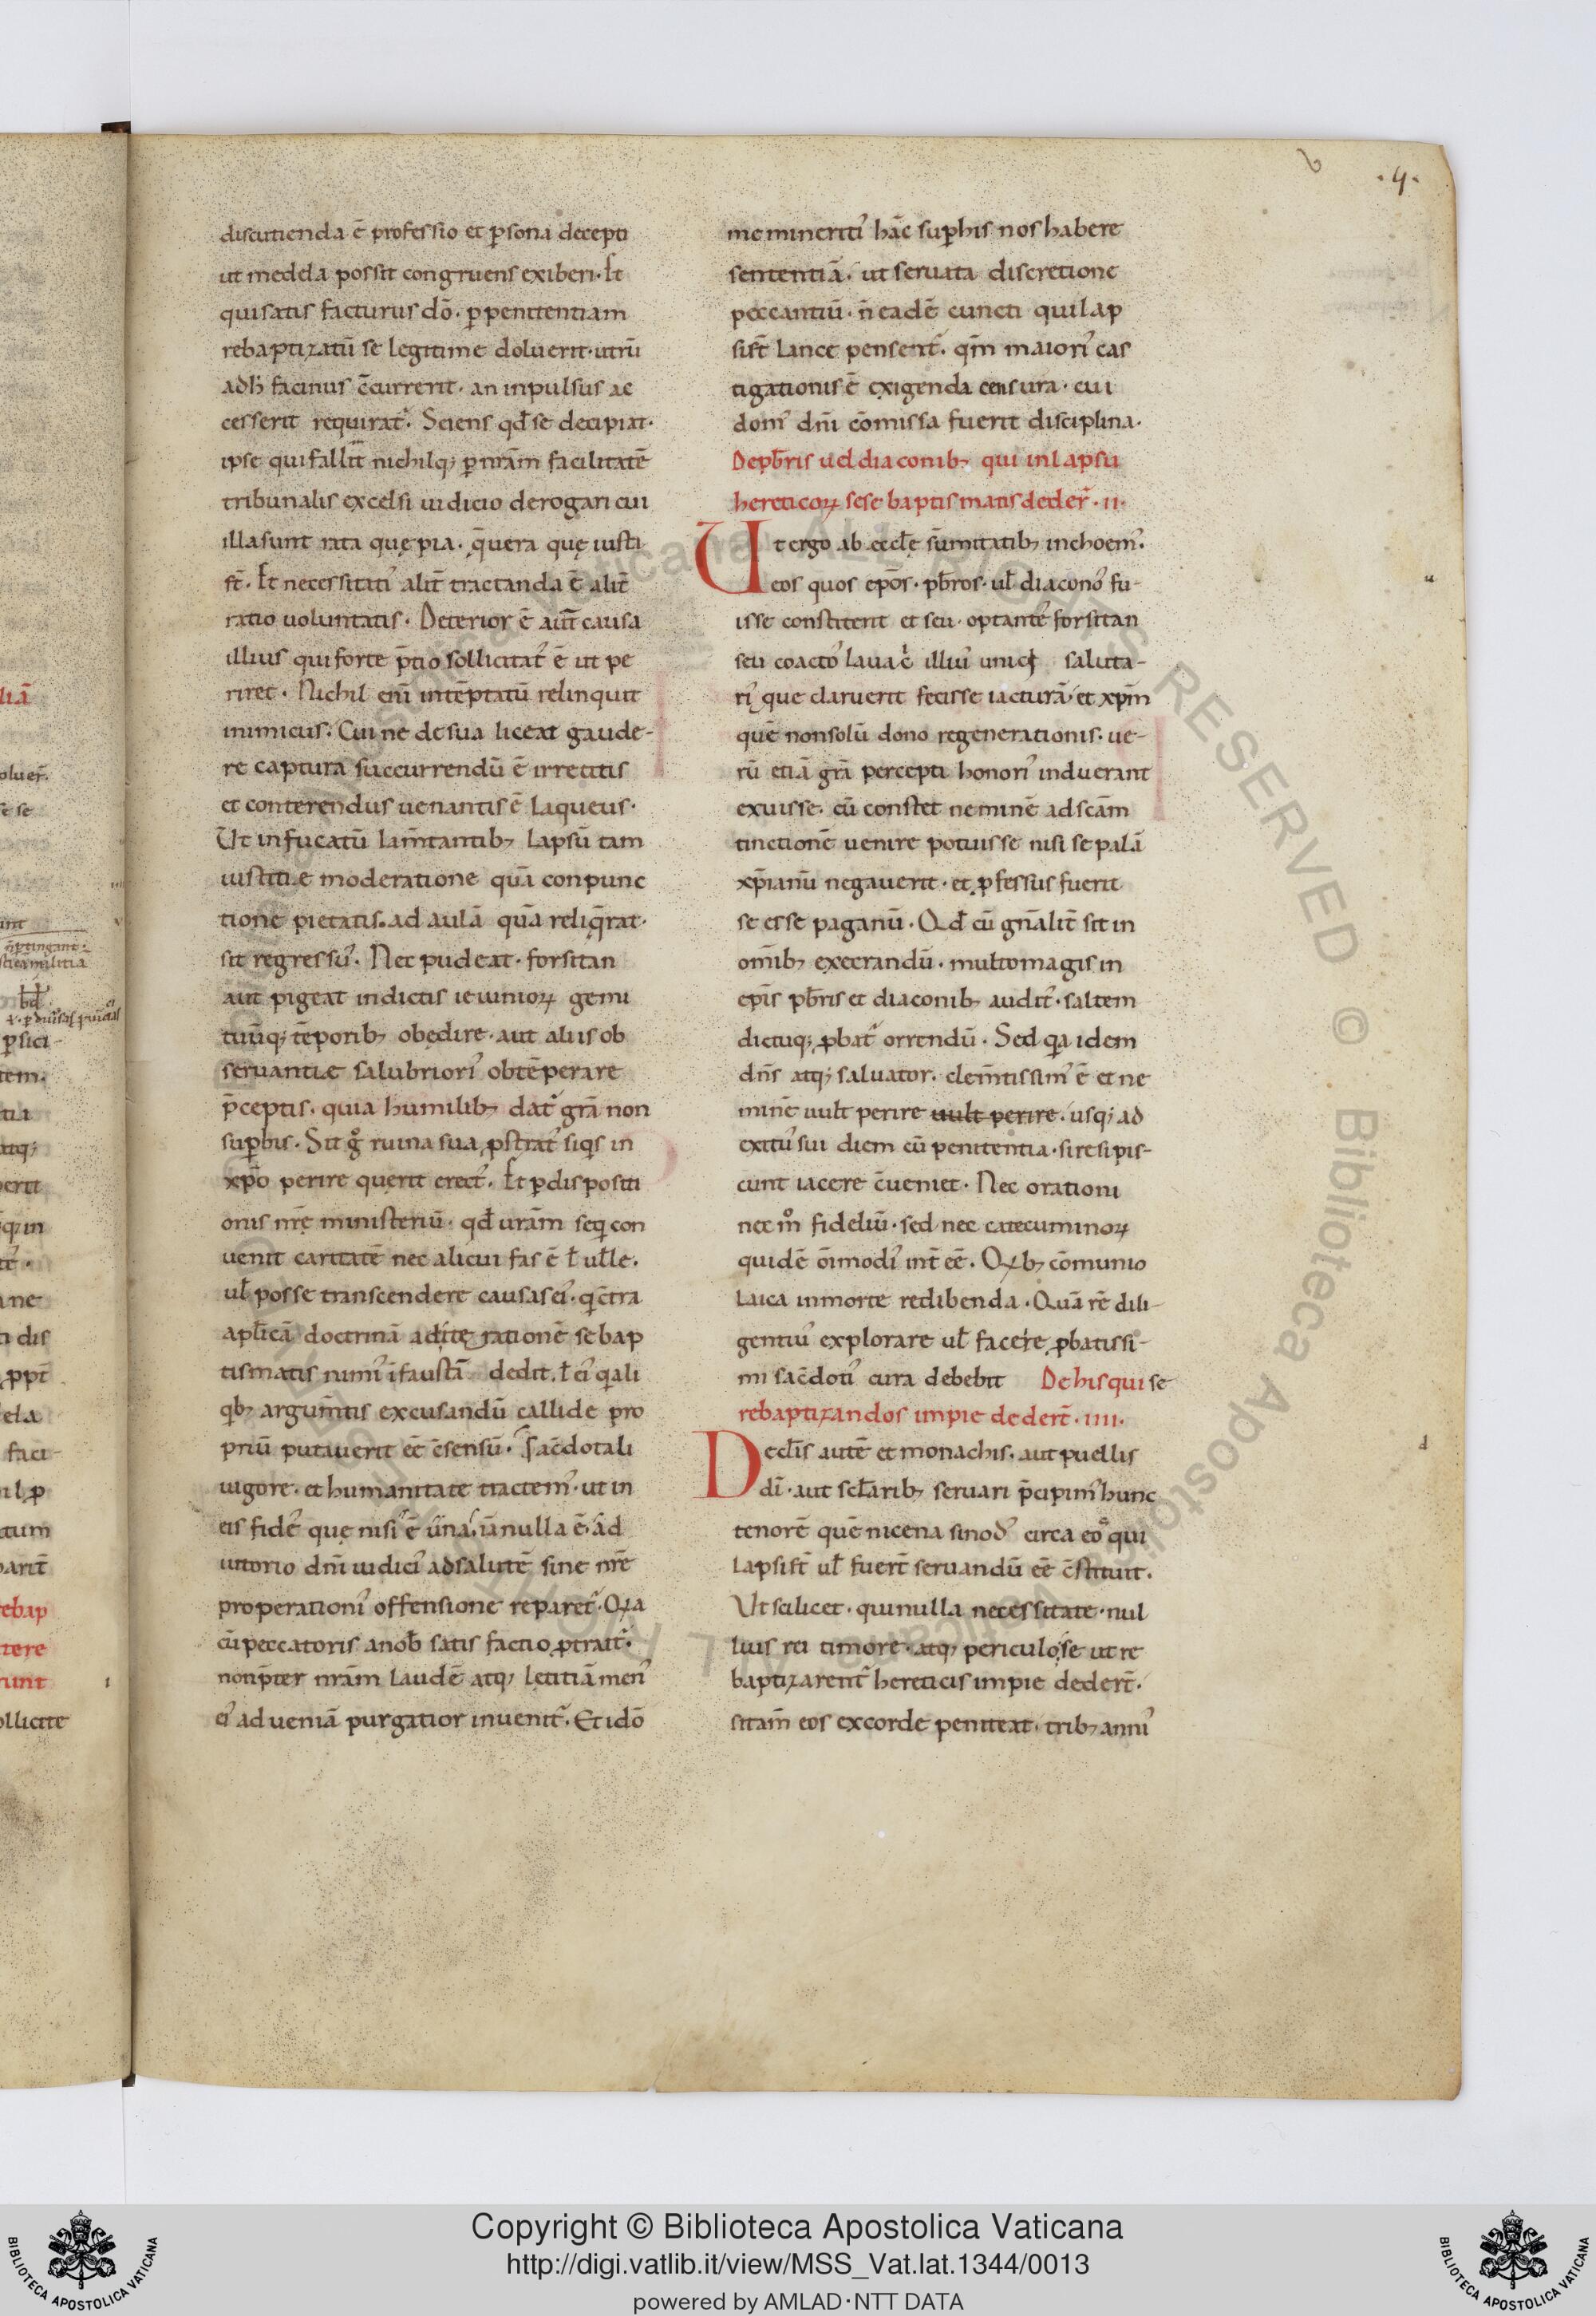 .4.
discutienda ē professio et ꝑsona decepti
ut medela possit congruens exiberi. Et
qui satis facturus dō. ꝑ penitentiam
rebaptizatū se legitime doluerit. utrū
ad h̄ facinus c̄currerit. an inpulsus ac
cesserit requirat᷑. Sciens qđ se decipiat.
ipse qui fallit nichilq; ꝑ nr̄am facilitatē
tribunalis excelsi iudicio derogari cui
illa sunt rata quę pia. q̄ uera quę iusti
st̄. Et necessitatı᾽ alit̄ tractanda ē alit̄
ratio uoluntatis. Deterior ē aut̄ causa
illius qui forte p̄tio sollicitat᷑ ē ut pe
riret. Nichil eni͂ intēptatū relinquit
inimicus. Cui ne de sua liceat gaude-
re captura succurrendū ē irretitis
et conterendus uenantis ē laqueus.
Ut infucatū lam̄tantib; lapsū tam
iustitiae moderatione quā conpunc
tione pietatis. ad aulā quā reliq̄rat.
sit regressu᾽. Nec pudeat. forsitan
aut pigeat indictis ieiunioꝝ gemi
tuūq; tēporib; obędire. aut aliis ob
seruantiae salubriori᾽ obtēperare
p̄ceptis. quia humilib; dat᷑ gr̄a non
suꝑbis. Sit gͦ ruina sua ꝓstrat᾽ siqͥs in
xp̄o perire querit erect᾽. Et ꝑ dispositi
onis nr̄ę ministeriū. qđ uram̄ seqͥ con
uenit caritatē nec alicui fas ē ł uelle.
uł posse transcendere causas ei᾽. qͥ c̄tra
apl̄icā doctrinā adite rationē se bap
tismatis numi᾽ ifaustā dedit. ł ei᾽ qͥ ali
qͥb; argum̄tis excusandū callide pro
priū putauerit eē c̄sensū. Sac̄dotali
uigore. et humanitate tractem᾽. ut in
eis fide᾽ quę nisi ē una. iā nulla ē. ad
iutorio dn̄i iudici᾽ ad salutē sine nr̄ę
properationi᾽ offensione reparet᷑. Qͥa
cū peccatoris a nob̄ satisfactio ꝓtrait᷑.
non p̄ter nr̄am laudē atq; lętitiā meri᾽
ei᾽ ad ueniā purgatior inuenit᷑. Et idō
meminerit᾽ hāc suꝑ his nos habere
sententiā. ut seruata discretione
peccantiū. n̄ eadē cuncti qui lap
si st̄ lance pensent᷑. qm̄ maiori᾽ cas
tigationis ē exigenda censura. cui
dom᾽ dn̄i cōmissa fuerit disciplina.
De pb̄ris uel diaconib; qui in lapsu
hereticoꝝ sese baptismatis deder᷑. ii.
Ut ergo ab eccl̄ę sūmitatib; inchoem᾽.
eos quos ep̄os. pb̄ros. uł diacono᾽ fu-
isse constiterit et seu. optante᾽ forsitan
seu coacto᾽ lauac̄ illiu᾽ unici saluta-
ri᾽ que claruerit fecisse iacturā. et xp̄m
quē non solū dono regenerationis. ue-
rū etiā gr̄a percepti honori᾽ induerant
exuisse. cū constet neminē ad scam̄
tinctionē uenire potuisse nisi se palā
xp̄ianū negauerit. et ꝓfessus fuerit
se esse paganū. Qđ cū gn̄alit̄ sit in
om̄ib; execrandū. multo magis in
ep̄is pb̄ris et diaconib; audit᾽. saltem
dictuq; ꝓbat᷑ orrendū. Sed qͥa idem
dn̄s atq; saluator. clem̄tissim᾽ ē et ne
minē uult perire uult perire. usq; ad
exitu᾽ sui diem cū penitentia. si resipis-
cunt iacere c̄ueniet. Nec orationi
nec mͦ fideliū. sed nec catecuminoꝝ
quidē ōimodi᾽ int̄ eē. Qͥb; cōmunio
laica in morte redibenda. Quā rē dili-
gentiu᾽ explorare uł facere ꝓbatissi-
mi sac̄doti᾽ cura debebit De his qui se
rebaptizandos impie dedert̄. iiii.
De cl̄is autē et monachis. aut puellis
dī. aut scl̄arib; seruari p̄cipim᾽ hunc
tenorē quē nicena sinod᾽ circa eoͦ qui
lapsi st̄ uł fuert̄ seruandū eē c̄stituit.
Ut scilicet. qui nulla necessitate. nul
lius rei timore. atq; periculo se ut re
baptizarent᷑ hereticis impie dedert̄.
si tam̄ eos ex corde peniteat. trib; anni᾽
Copyright © Biblioteca Apostolica Vaticana
http://digi.vatlib.it/view/MSS_Vat.lat.1344/0013
powered by AMLAD·NTT DATA